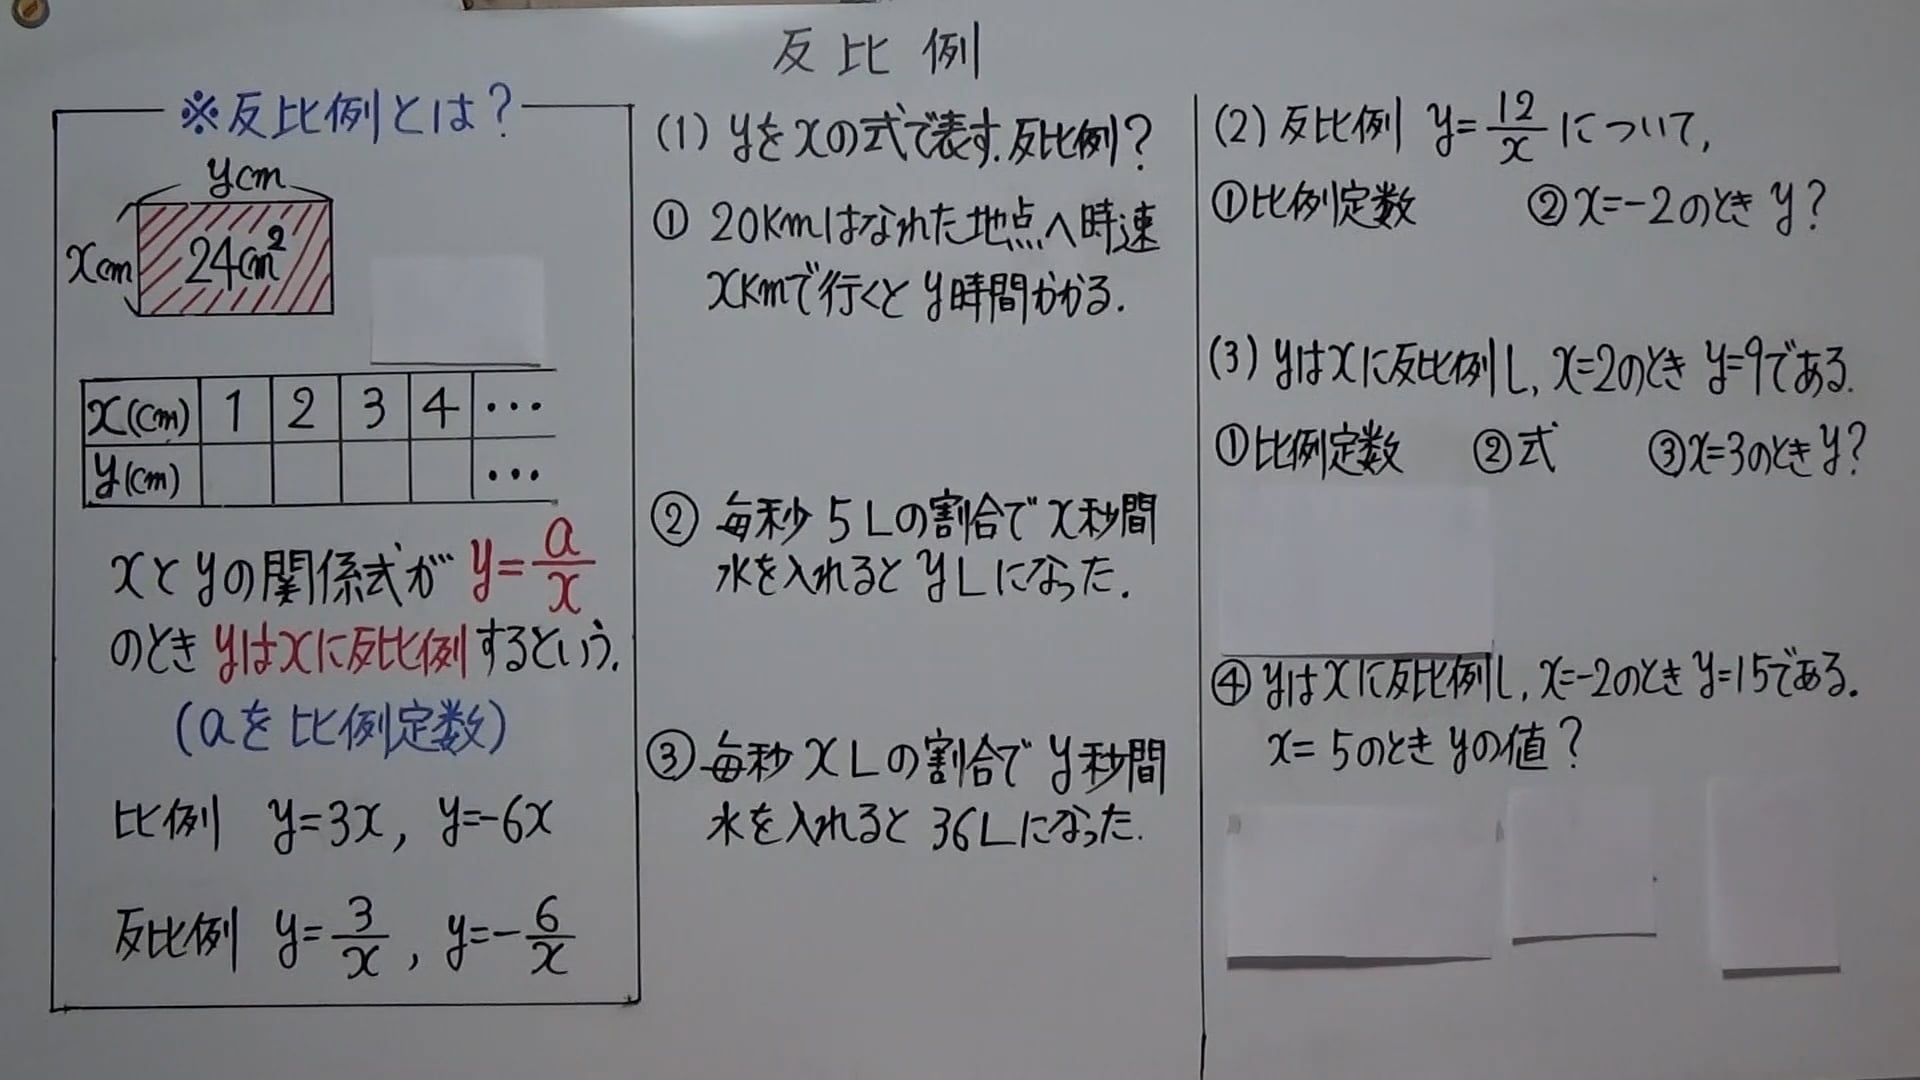 反比例
※反比例とは?
ycm
xcm
24cm²
x(cm) 1 2 3 4 …
y(cm) …
xとyの関係式が y=a/x
のとき yはxに反比例するという.
(aを比例定数)
比例 y=3x, y=-6x
反比例 y=3/x, y=-6/x
(1) yをxの式で表す.反比例?
① 20Kmはなれた地点へ時速
xKmで行くと y時間かかる.
② 毎秒 5Lの割合で x秒間
水を入れると yLになった.
③ 毎秒 xLの割合で y秒間
水を入れると 36Lになった.
(2) 反比例 y=12/x について,
①比例定数 ②x=-2のとき y?
(3) yはxに反比例し, x=2のとき y=9である.
①比例定数 ②式 ③x=3のとき y?
④ yはxに反比例し, x=-2のとき y=15である.
x=5のとき yの値?